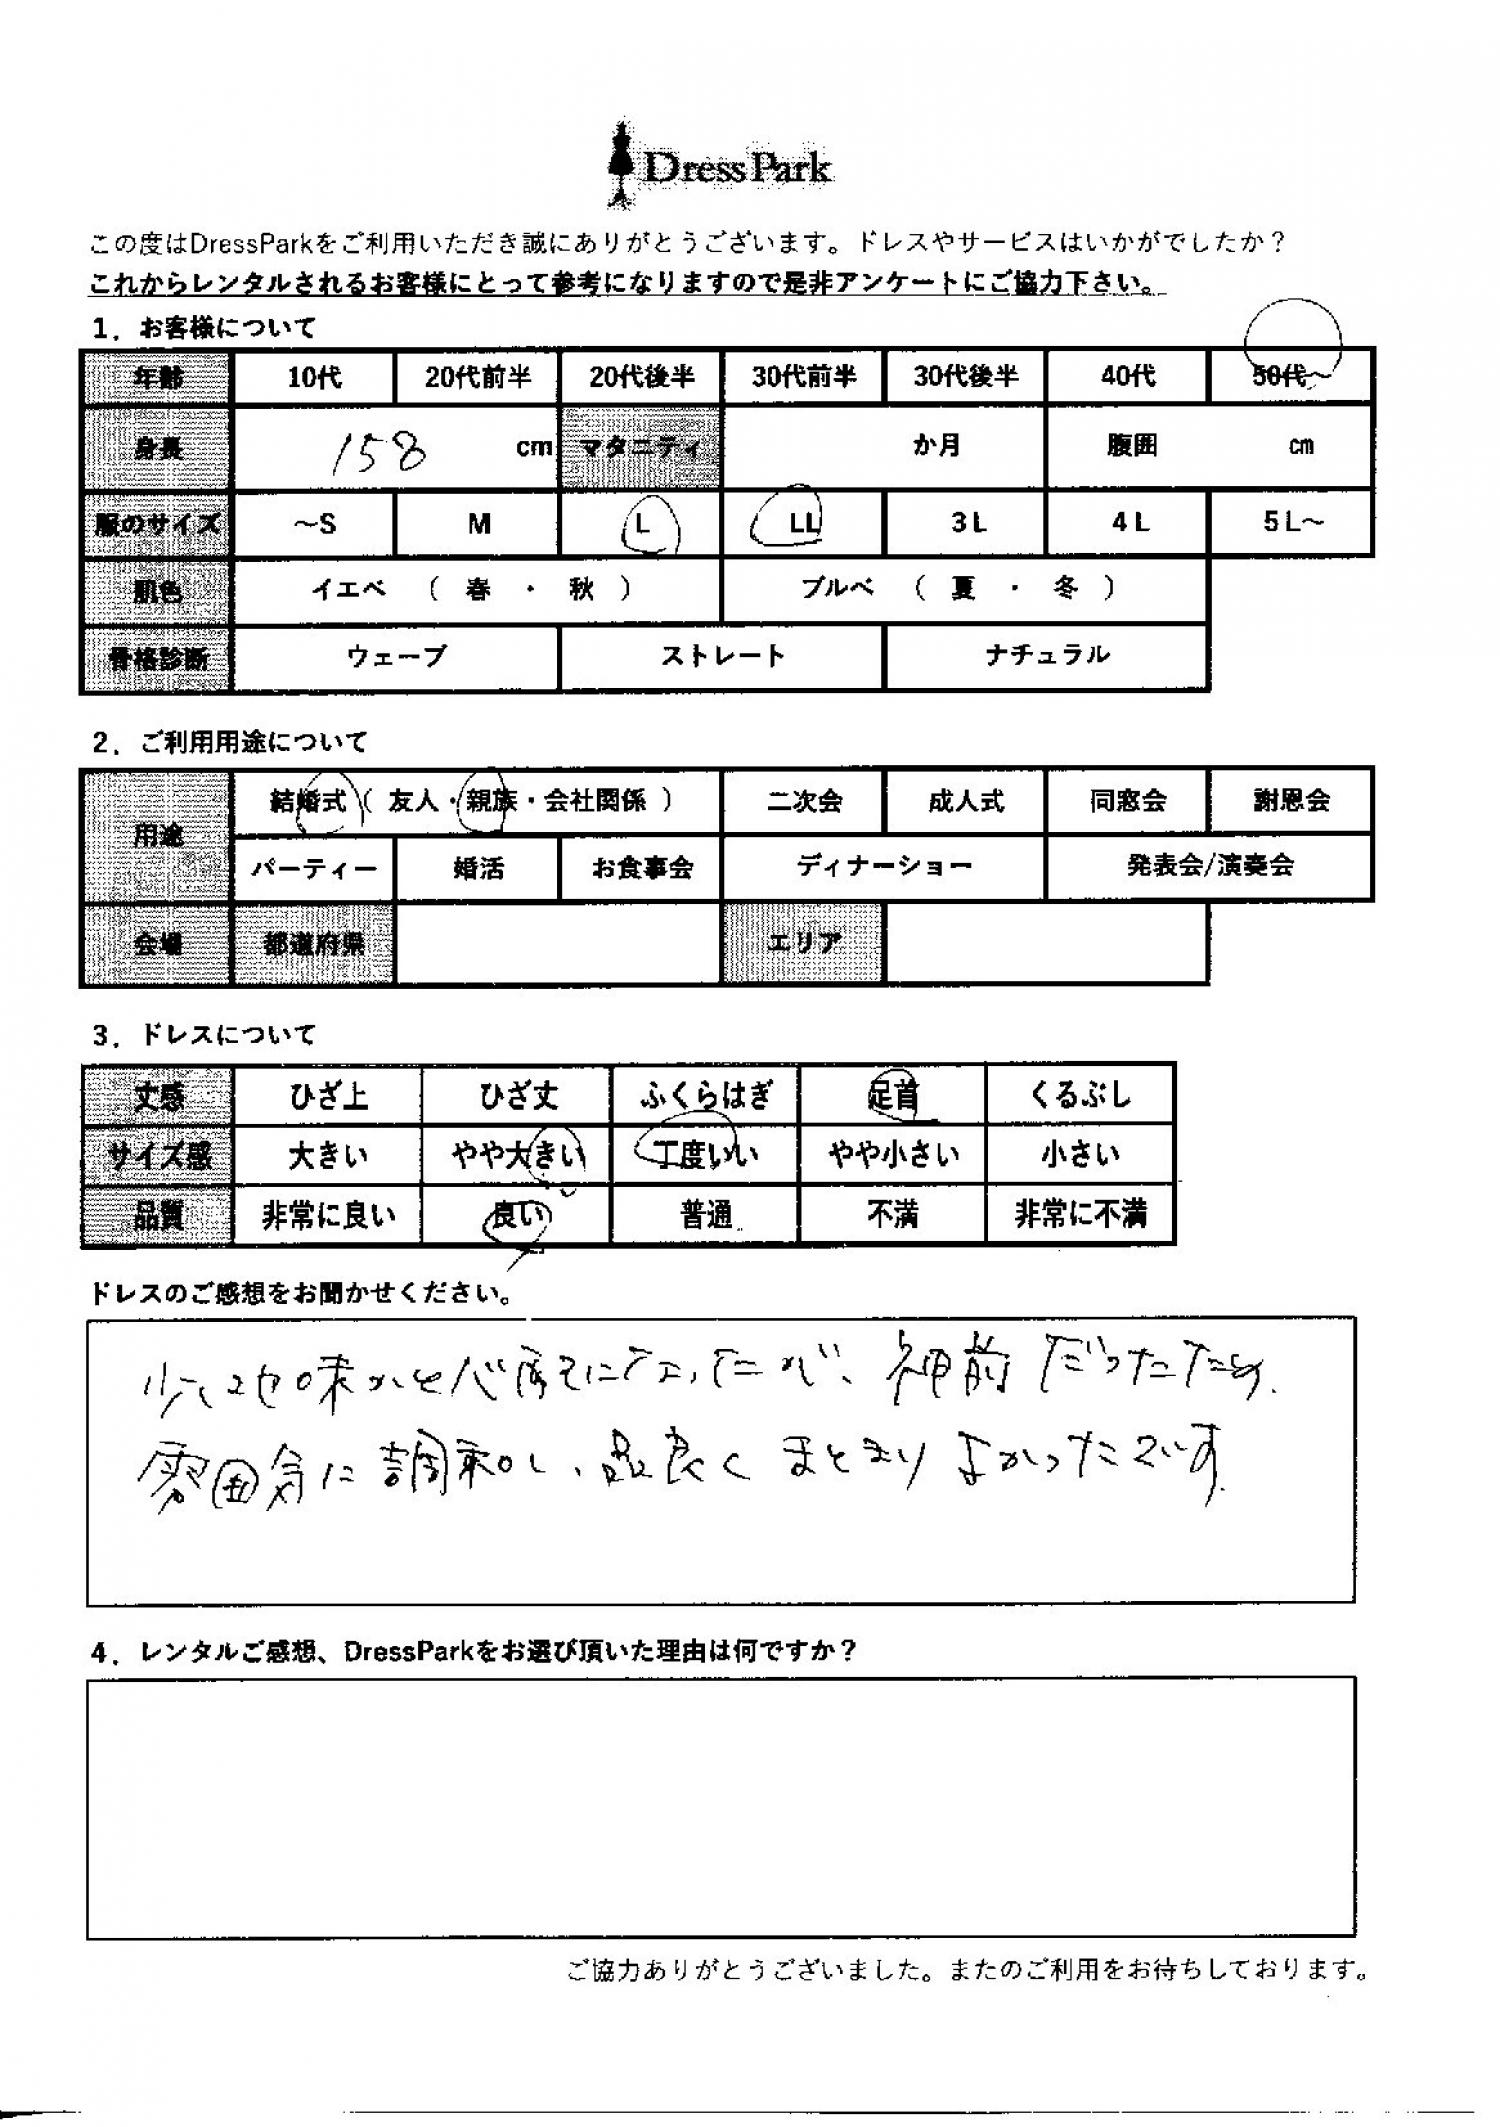 DressPark
この度はDressParkをご利用いただき誠にありがとうございます。ドレスやサービスはいかがでしたか？
これからレンタルされるお客様にとって参考になりますので是非アンケートにご協力下さい。
1．お客様について
年齢 10代 20代前半 20代後半 30代前半 30代後半 40代 50代～
身長 158 cm マタニティ か月 腹囲 cm
服のサイズ ～S M L LL 3L 4L 5L～
肌色 イエベ （ 春 ・ 秋 ） ブルベ （ 夏 ・ 冬 ）
骨格診断 ウェーブ ストレート ナチュラル
2．ご利用用途について
用途 結婚式（ 友人・親族・会社関係 ） 二次会 成人式 同窓会 謝恩会
パーティー 婚活 お食事会 ディナーショー 発表会/演奏会
会場 都道府県 エリア
3．ドレスについて
丈感 ひざ上 ひざ丈 ふくらはぎ 足首 くるぶし
サイズ感 大きい やや大きい 丁度いい やや小さい 小さい
品質 非常に良い 良い 普通 不満 非常に不満
ドレスのご感想をお聞かせください。
少し地味かと心配に が、神前だったため、
雰囲気に調和し、品良くまとまりよかったです。
4．レンタルご感想、DressParkをお選び頂いた理由は何ですか？
ご協力ありがとうございました。またのご利用をお待ちしております。